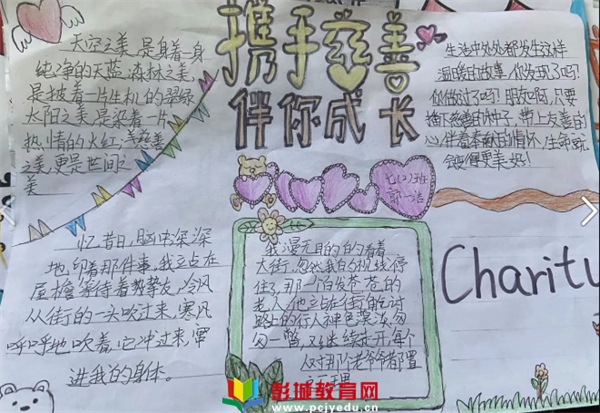 携手慈善
伴你成长
天空之美,是身着一身
纯净的天蓝,森林之美,
是披着一片生机的翠绿
太阳之美,是染着一片
热情的火红;
美,更是世间之
美
生活中处处都发生这样
温暖的故事,你发现了吗?
你做过了吗?朋友啊,只要
播下慈善的种子,带上友善的
心,伴着奉献的情怀,生命就
会变得更美好!
七(2)班
忆昔日,脑中深深
地印着那件事,我立站在
屋檐等待着
从街的一头吹过来,寒风
呼呼地吹着,它冲过来,窜
进我的身体。
我漫无目的的看着
大街,忽然我的视线停
住了,那一个白发苍苍的
老人,他立在街角乞讨
路上的行人神色
匆一瞥,又继续走开,每个
人对那老爷爷都置
之不理
Charity
彭城教育网
www.pcjyedu.cn